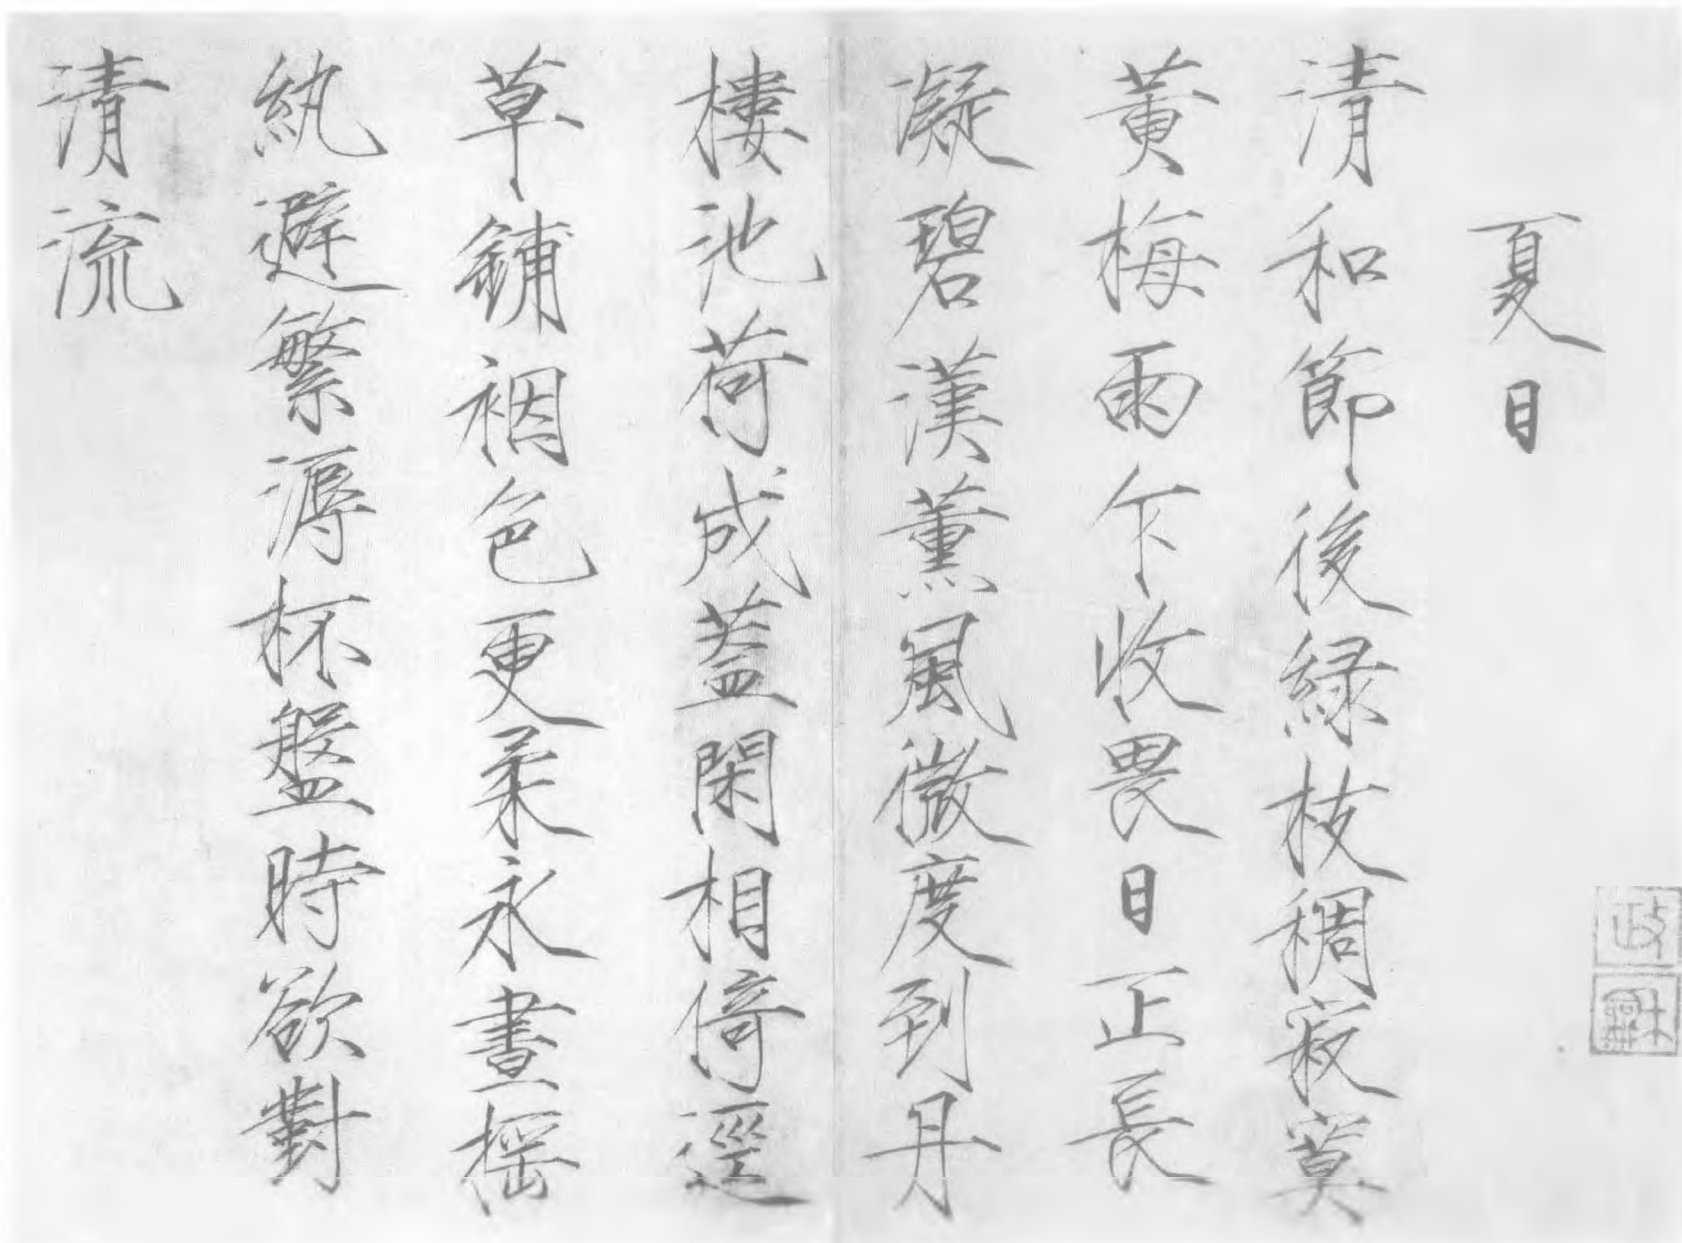 夏日
清和節後緑枝稠寂寞
黄梅雨乍收畏日正長
凝碧漢薰風微度到丹
樓池荷成蓋閑相倚逕
草鋪裀色更柔永晝揺
紈避繁溽杯盤時欲對
清流
政和